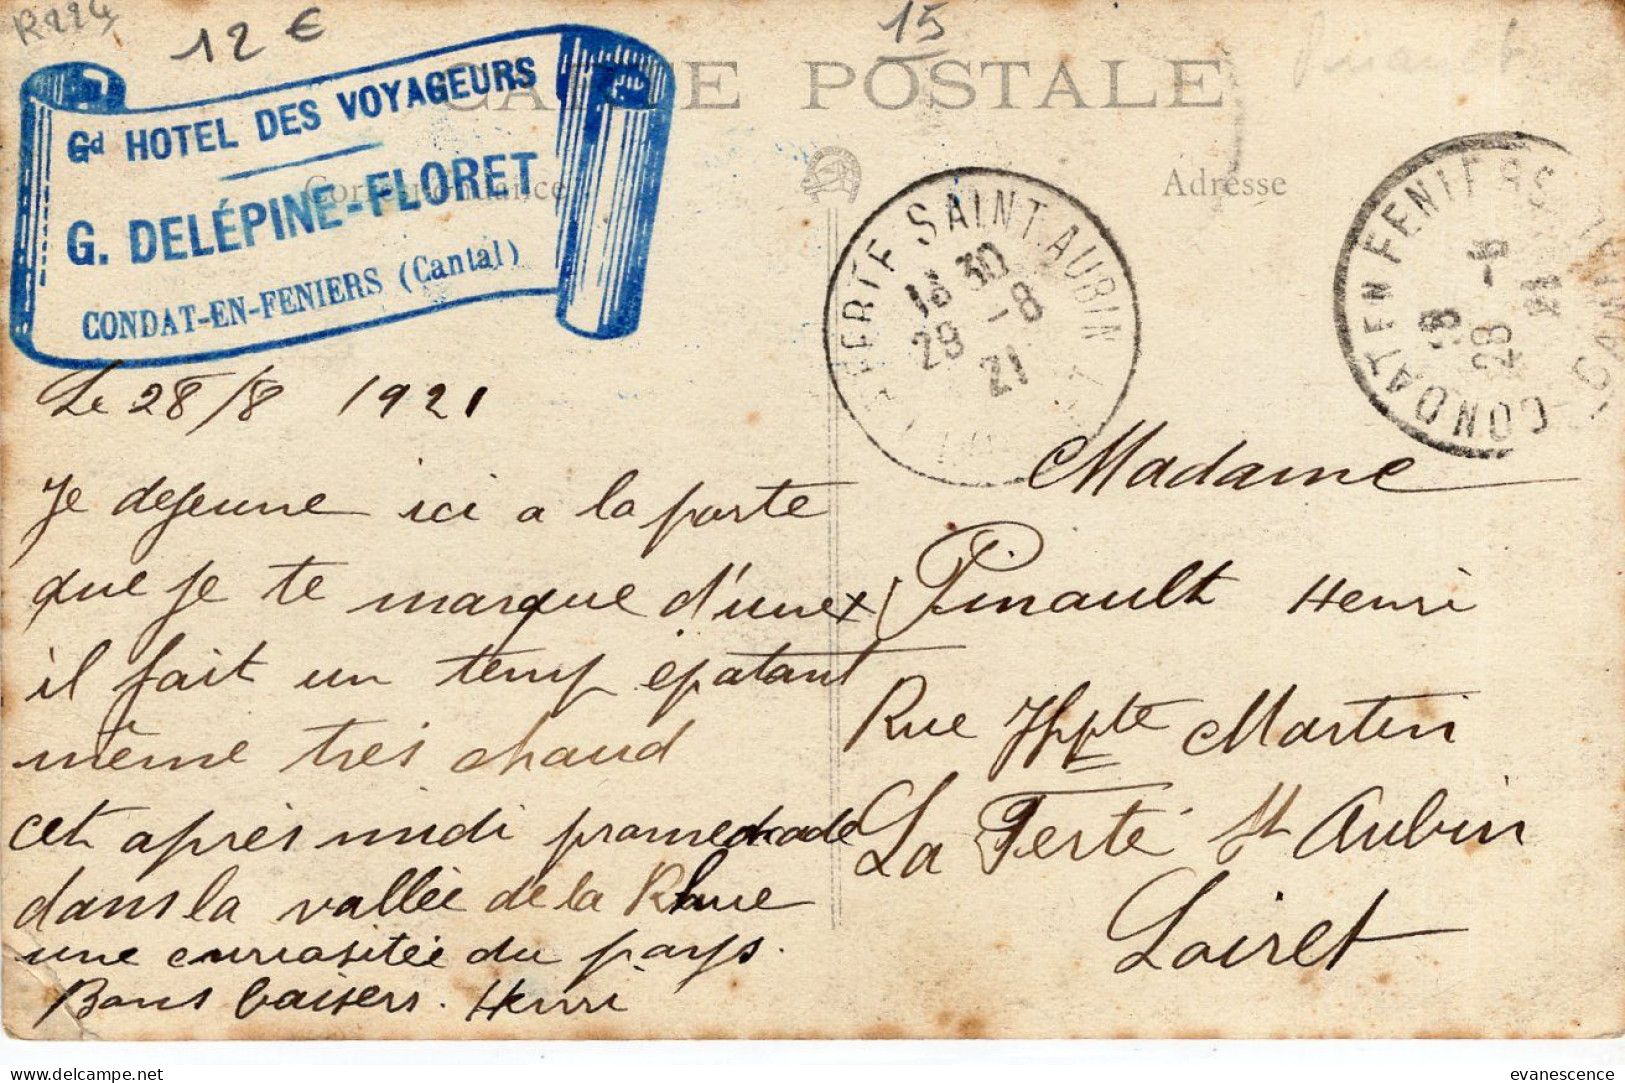 R224
12 €
15
CARTE POSTALE
Correspondance
Adresse
Gd HOTEL DES VOYAGEURS
G. DELÉPINE-FLORET
CONDAT-EN-FENIERS (Cantal)
FERTE SAINT AUBIN
18 30
29 -8
21
CONDAT EN FENIERS
CANTAL
18
28 -8
21
Le 28/8 1921
Je dejeune ici a la porte
que je te marque d'une x
il fait un temp epatant
même tres chaud
cet après midi promenade
dans la vallée de la Rhue
une curiasitée du pays.
Bons baisers. Henri
Madame
Pinault Henri
Rue Hppte Martin
La Ferté St Aubin
Loiret
evanescence